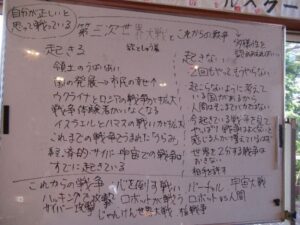 自分が正しいと
思って戦っている
第三次世界大戦と これからの戦争
起きる
起きない
領土のうばい合い
国の発展→市民の幸せ↑
ウクライナとロシアの戦争が拡大
戦争体験者がいなくなる
イスラエルとハマスの戦いが拡大
これまでの戦争でうまれた「うらみ」
経済的・サイバー・宇宙での戦争は
すでに起きている
2回もやったからやらない
起こらないように考えて
いる国がある
今起きている戦争を見て
やっぱり戦争はよくないと
感じる人が増えている
世界を2分する戦争は
おきない
相手を許す
これからの戦争
心を倒す戦い
バーチャル
宇宙大戦
ハッキングで攻撃
ロボットが戦う
ロボットvs人間
サイバー攻撃
じゃんけん世界大戦
核戦争